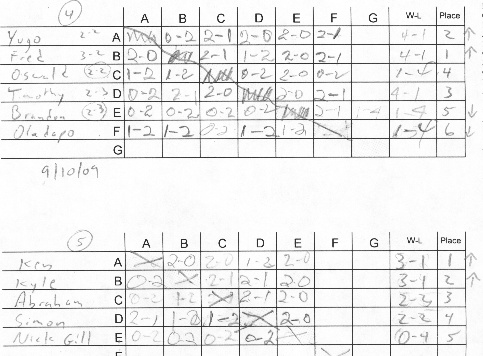 4
A B C D E F G W-L Place
Yugo 2-2 A 0-2 2-1 2-0 2-0 2-1 4-1 2 ↑
Fred 3-2 B 2-0 2-1 1-2 2-0 2-1 4-1 1 ↑
Oswald (2-2) C 1-2 1-2 0-2 2-0 0-2 1-4 4
Timothy 2-3 D 0-2 2-1 2-0 2-0 2-1 4-1 3
Brandon (2-3) E 0-2 0-2 0-2 0-2 2-1 1-4 5 ↓
Oladapo F 1-2 1-2 1-2 1-2 1-4 6 ↓
G
9/10/09
5
A B C D E F G W-L Place
Ken A 2-0 2-0 1-2 2-0 3-1 1 ↑
Kyle B 0-2 2-1 2-1 2-0 3-1 2 ↑
Abraham C 0-2 1-2 2-1 2-0 2-2 3
Simon D 2-1 1-2 2-0 2-2 4
Nick Gill E 0-2 0-2 0-2 0-2 0-4 5